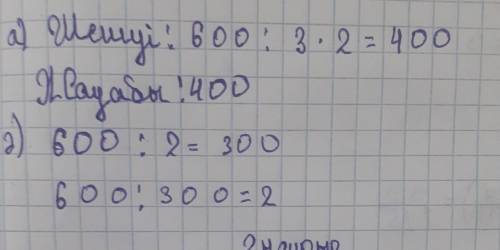 а) Шешуі: 600 : 3 · 2 = 400
Жауабы: 400
2) 600 : 2 = 300
600 : 300 = 2